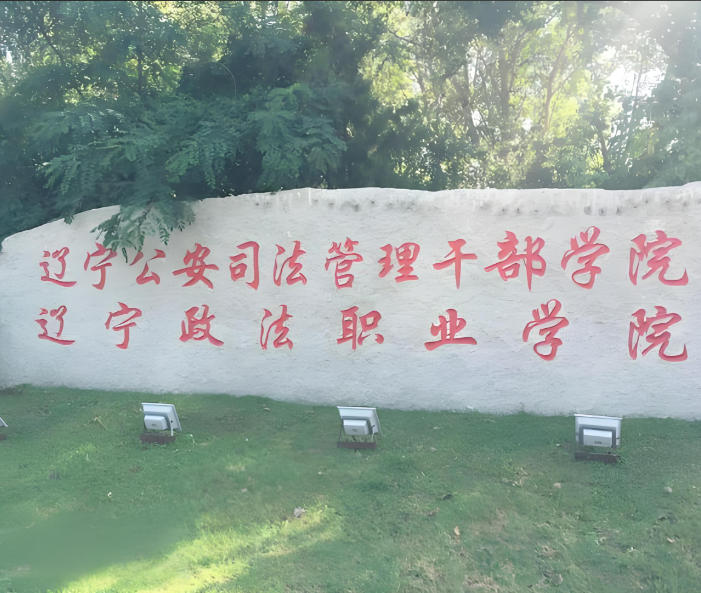 辽宁公安司法管理干部学院
辽宁政法职业学院